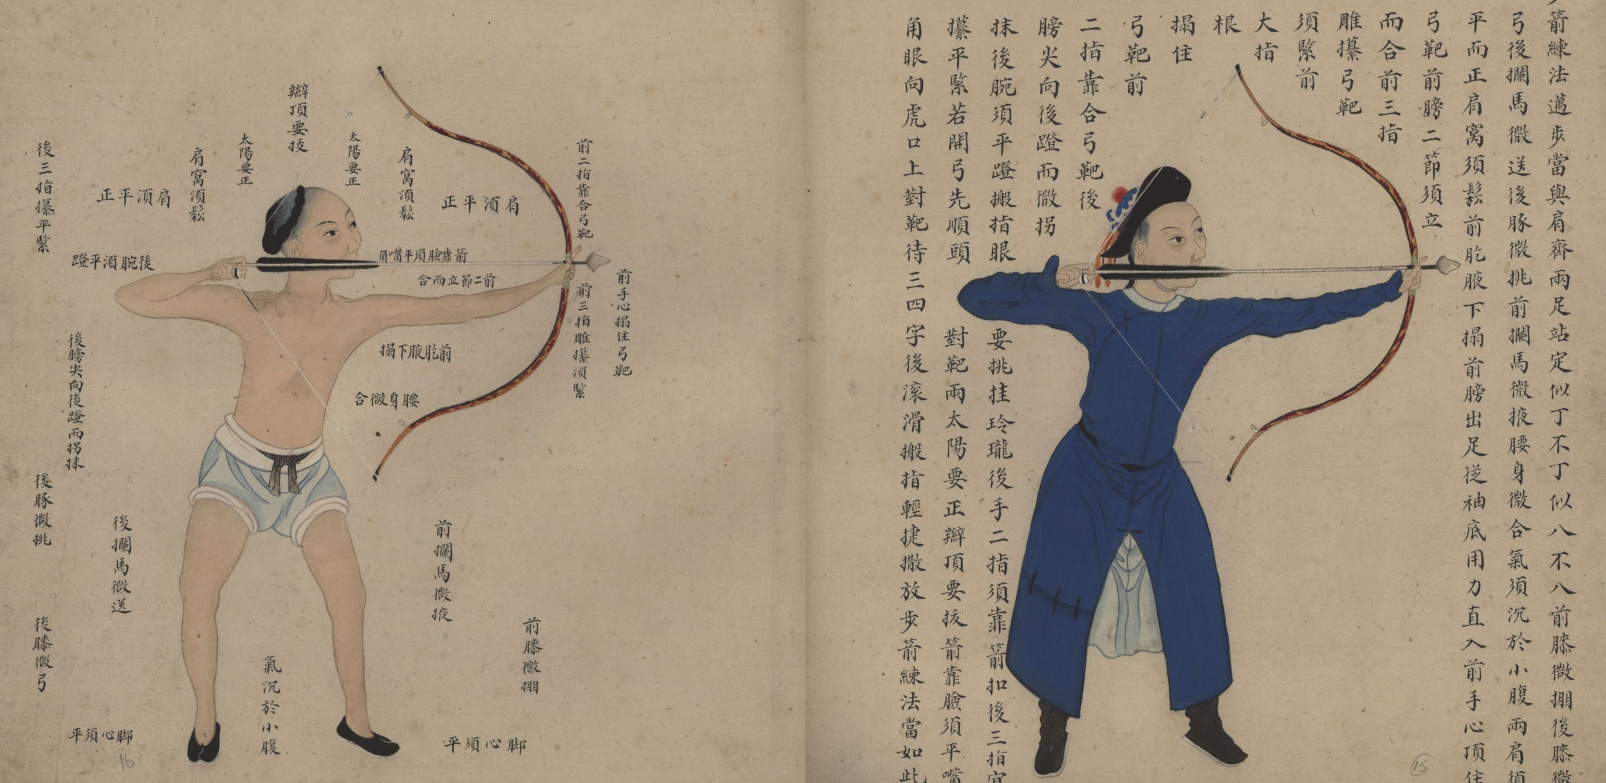 箭練法邁步當與肩齊兩足站定似丁不丁似八不八前膝微掤後膝微
弓後攔馬微送後豚微挑前攔馬微掖腰身微合氣須沉於小腹兩肩須
平而正肩窩須鬆前肐腋下搨前膀出足從袖底用力直入前手心頂住
弓靶前膀二節須立
而合前三指
雎攥弓靶
須緊前
大指
根
搨住
弓靶前
二指靠合弓靶後
膀尖向後蹬而微拐
抹後腕須平蹬搬指眼要挑挂玲瓏後手二指須靠箭扣後三指宜
攥平緊若開弓先順頭對靶兩太陽要正辮頂要拔箭靠臉須平嘴
角眼向虎口上對靶待三四字後滾滑搬指輕捷撒放步箭練法當如此
15
前手心搨住弓靶
前二指靠合弓靶
前三指雎攥須緊
肩須平正
肩窩須鬆
太陽要正
辮頂要拔
太陽要正
肩窩須鬆
肩須平正
後三指攥平緊
箭靠臉須平嘴角
前二節立而合
後腕須平蹬
前肐腋下搨
腰身微合
後膀尖向後蹬而拐抹
後豚微挑
後攔馬微送
前攔馬微掖
前膝微掤
後膝微弓
氣沉於小腹
脚心須平
脚心須平
16